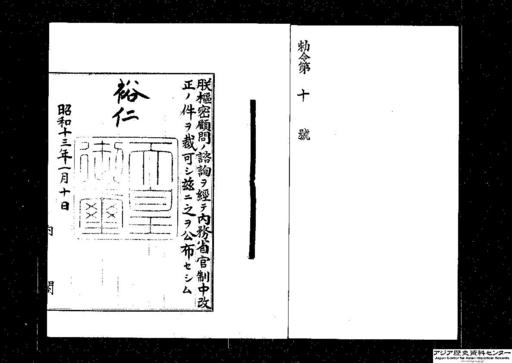 勅令第十號
朕樞密顧問ノ諮詢ヲ經テ內務省官制中改
正ノ件ヲ裁可シ玆ニ之ヲ公布セシム
裕仁
天皇御璽
昭和十三年一月十日
內閣
アジア歴史資料センター
Japan Center for Asian Historical Records